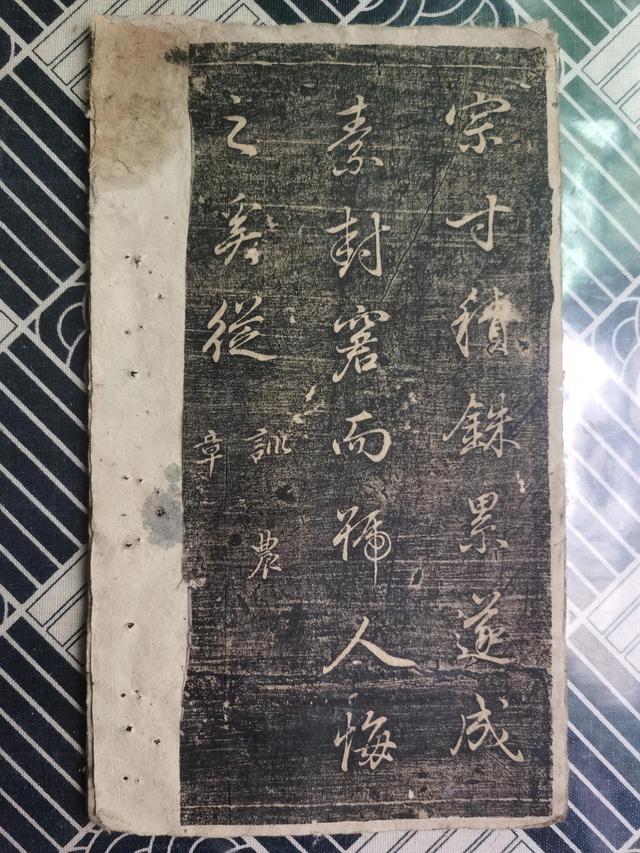 宗寸積銖累遂成
素封窘而號人悔
之奚從
訛農
章